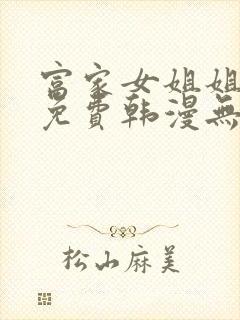 富家女姐姐
免費韩漫無
松山麻美